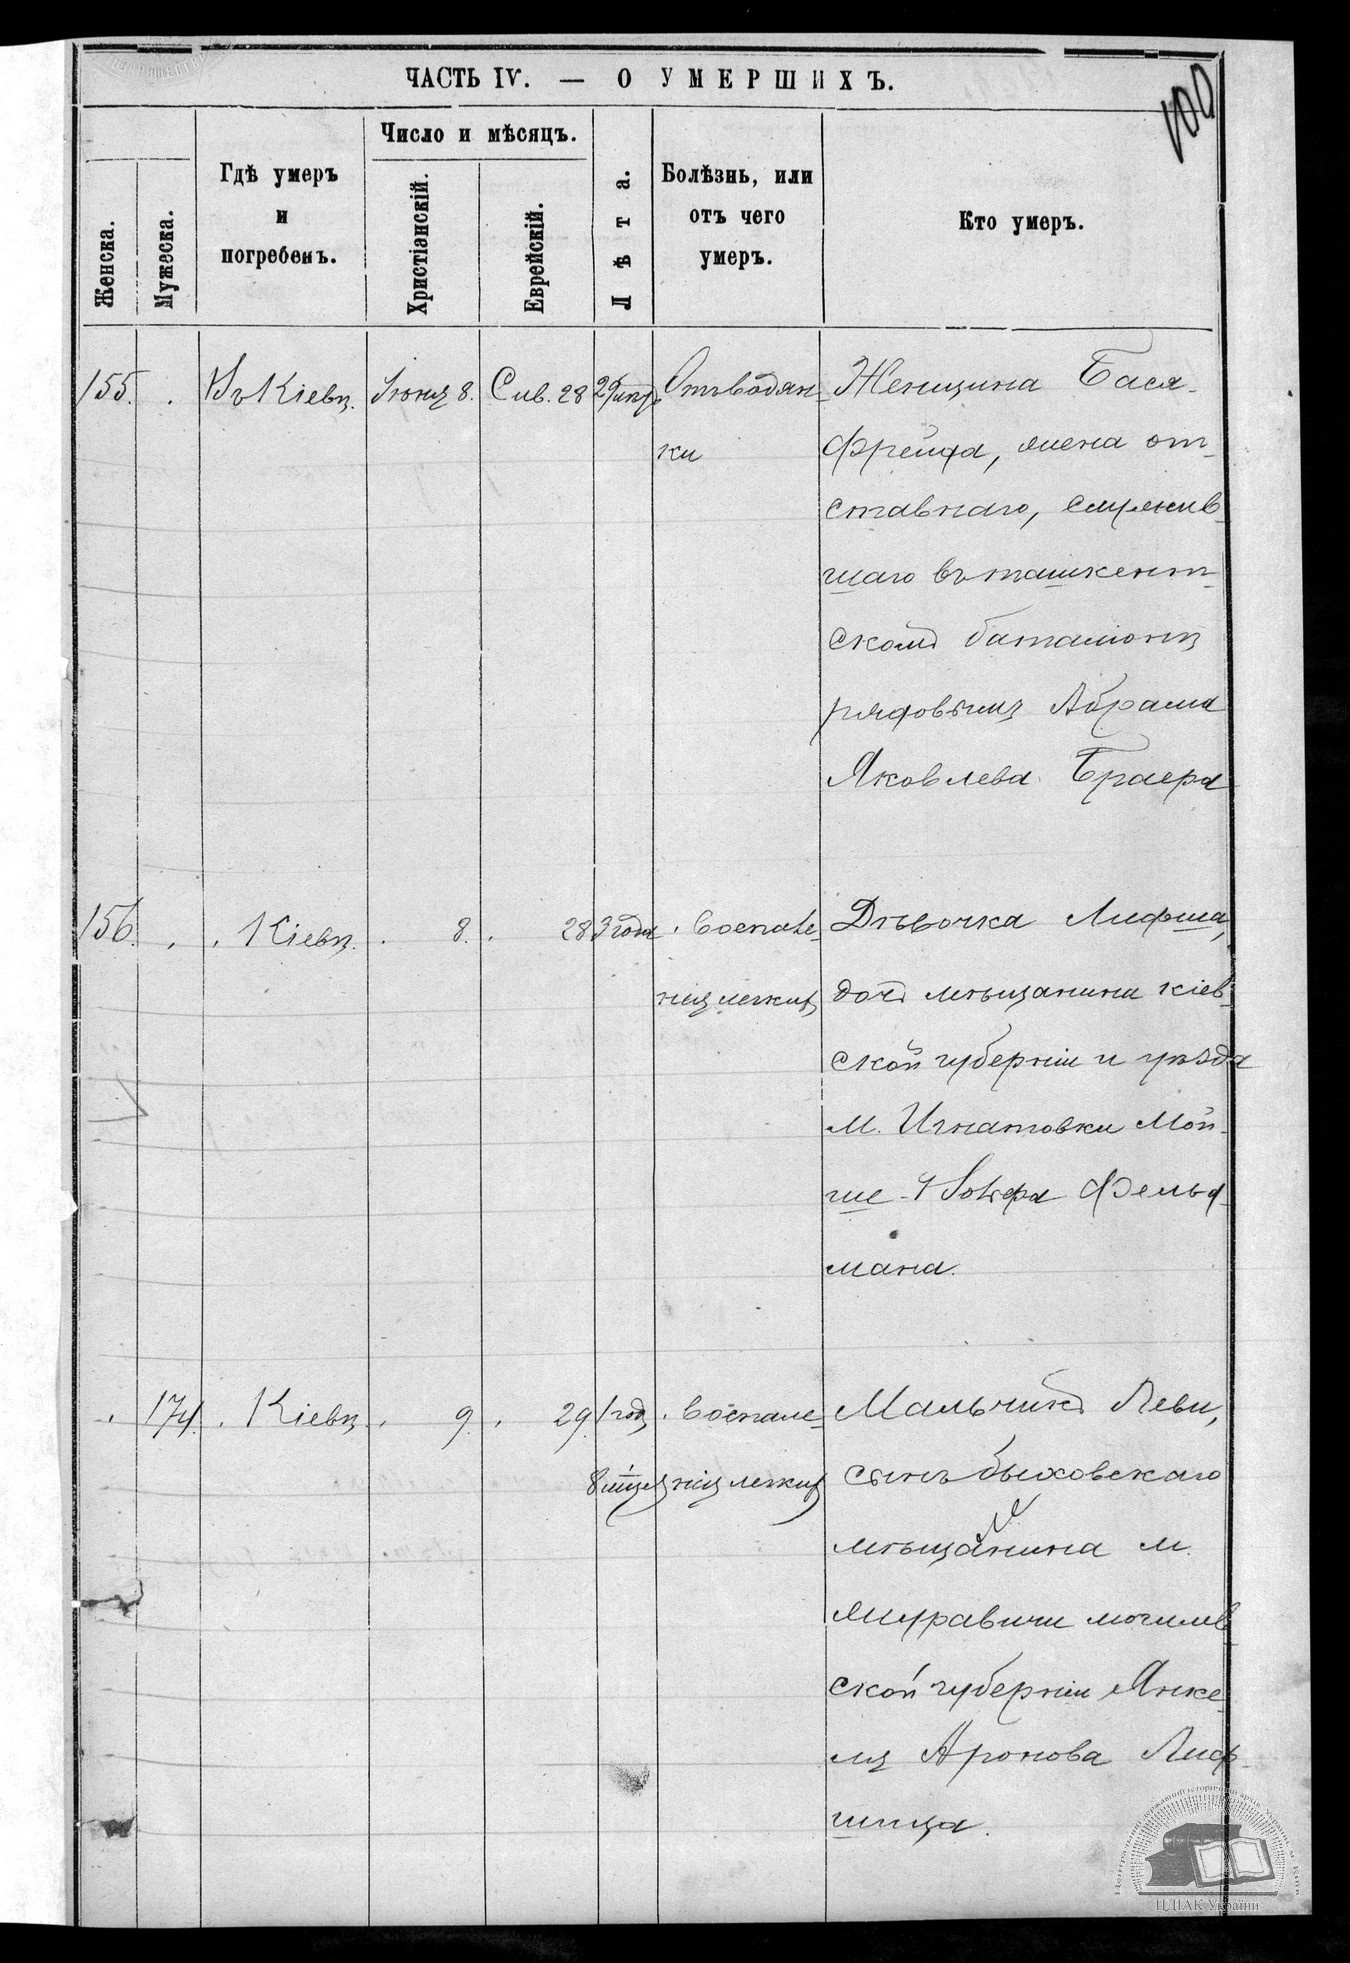 ЧАСТЬ IV. — О УМЕРШИХЪ.
100
Женска.
Мужеска.
Гдѣ умеръ
и
погребенъ.
Число и мѣсяцъ.
Христіанскій.
Еврейскій.
Лѣта.
Болѣзнь, или
отъ чего
умеръ.
Кто умеръ.
155. Въ Кіевѣ. Іюня 8. Сив. 28 Отъ водян-
ки
Женщина Бася-
Фрейда, жена от-
ставнаго, служив-
шаго въ ташкент-
скомъ баталіонѣ
рядовымъ Абрама
Яковлева Браера
156. Кіевѣ. 8. 28 3 года воспале-
нія легкихъ
Дѣвочка Лифша,
дочь мѣщанина кіев-
ской губерніи и уѣзда
м. Игнатовки Мой-
ше- Фельд-
мана.
174. Кіевѣ. 9. 29. 1 год. воспале-
8 нія легкихъ
Мальчикъ Леви,
сынъ быховскаго
мѣщанина м.
журавичи могилев-
ской губерніи Янке-
ля Аронова Лиф-
шица.
ЦДІАК України